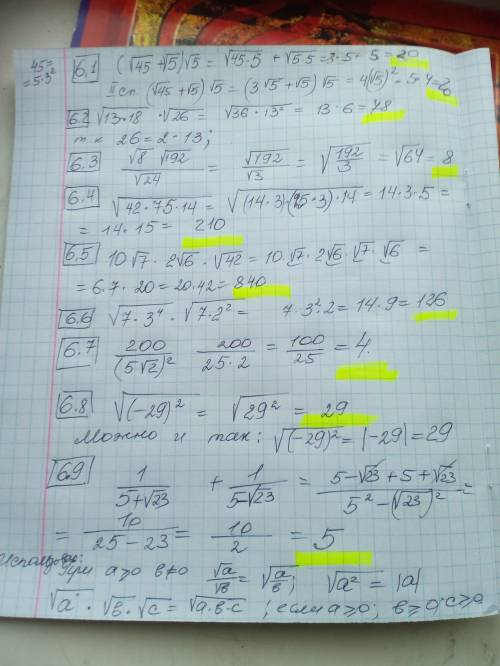 45=
=5·3²
6.1 (√45 +√5)√5 = √45·5 + √5·5 = 3·5+ 5 = 20
II сп. (√45 +√5)√5 = (3√5 + √5)√5 = 4(√5)² = 5·4=20
6.2 √13·18 · √26 = √36·13² = 13·6 = 78
т.к 26 = 2·13;
6.3 √8·√192 / √24 = √192 / √3 = √(192/3) = √64 = 8
6.4 √42·75·14 = √(14·3)·(25·3)·14 = 14·3·5 =
= 14·15 = 210
6.5 10√7 · 2√6 · √42 = 10·√7·2√6·√7·√6 =
= 6·7·20 = 20·42 = 840
6.6 √7·3⁴ · √7·2² = 7·3²·2 = 14·9 = 126
6.7 200/(5√2)² 200/25·2 = 100/25 = 4.
6.8 √(-29)² = √29² = 29
Можно и так: √(-29)² = |-29| = 29
6.9 1/(5+√23) + 1/(5-√23) = (5-√23 + 5 + √23)/(5² - (√23)²) =
= 10/(25-23) = 10/2 = 5
при a≥0 b≠0 √a/√b = √(a/b); √a² = |a|
√a · √b · √c = √a·b·c ; если a≥0; b≥0; c≥0